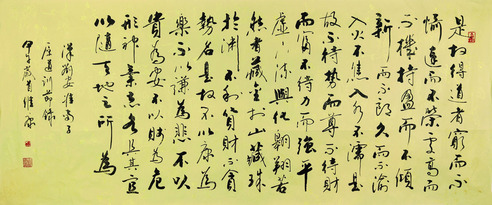 是故得道者窮而不
懾達而不榮處高而
不機持盈而不傾
新而不朗久而不渝
入火不焦入水不濡是
故不待勢而尊不待財
而富不待力而強平
虛下流與化翱翔若
然者藏金於山藏珠
於淵不利貨財不貪
勢名是故不以康為
樂不以慊為悲不以
貴為安不以賤為危
形神氣志各居其宜
以隨天地之所為
漢劉安淮南子
原道訓節錄
甲午歲首維康